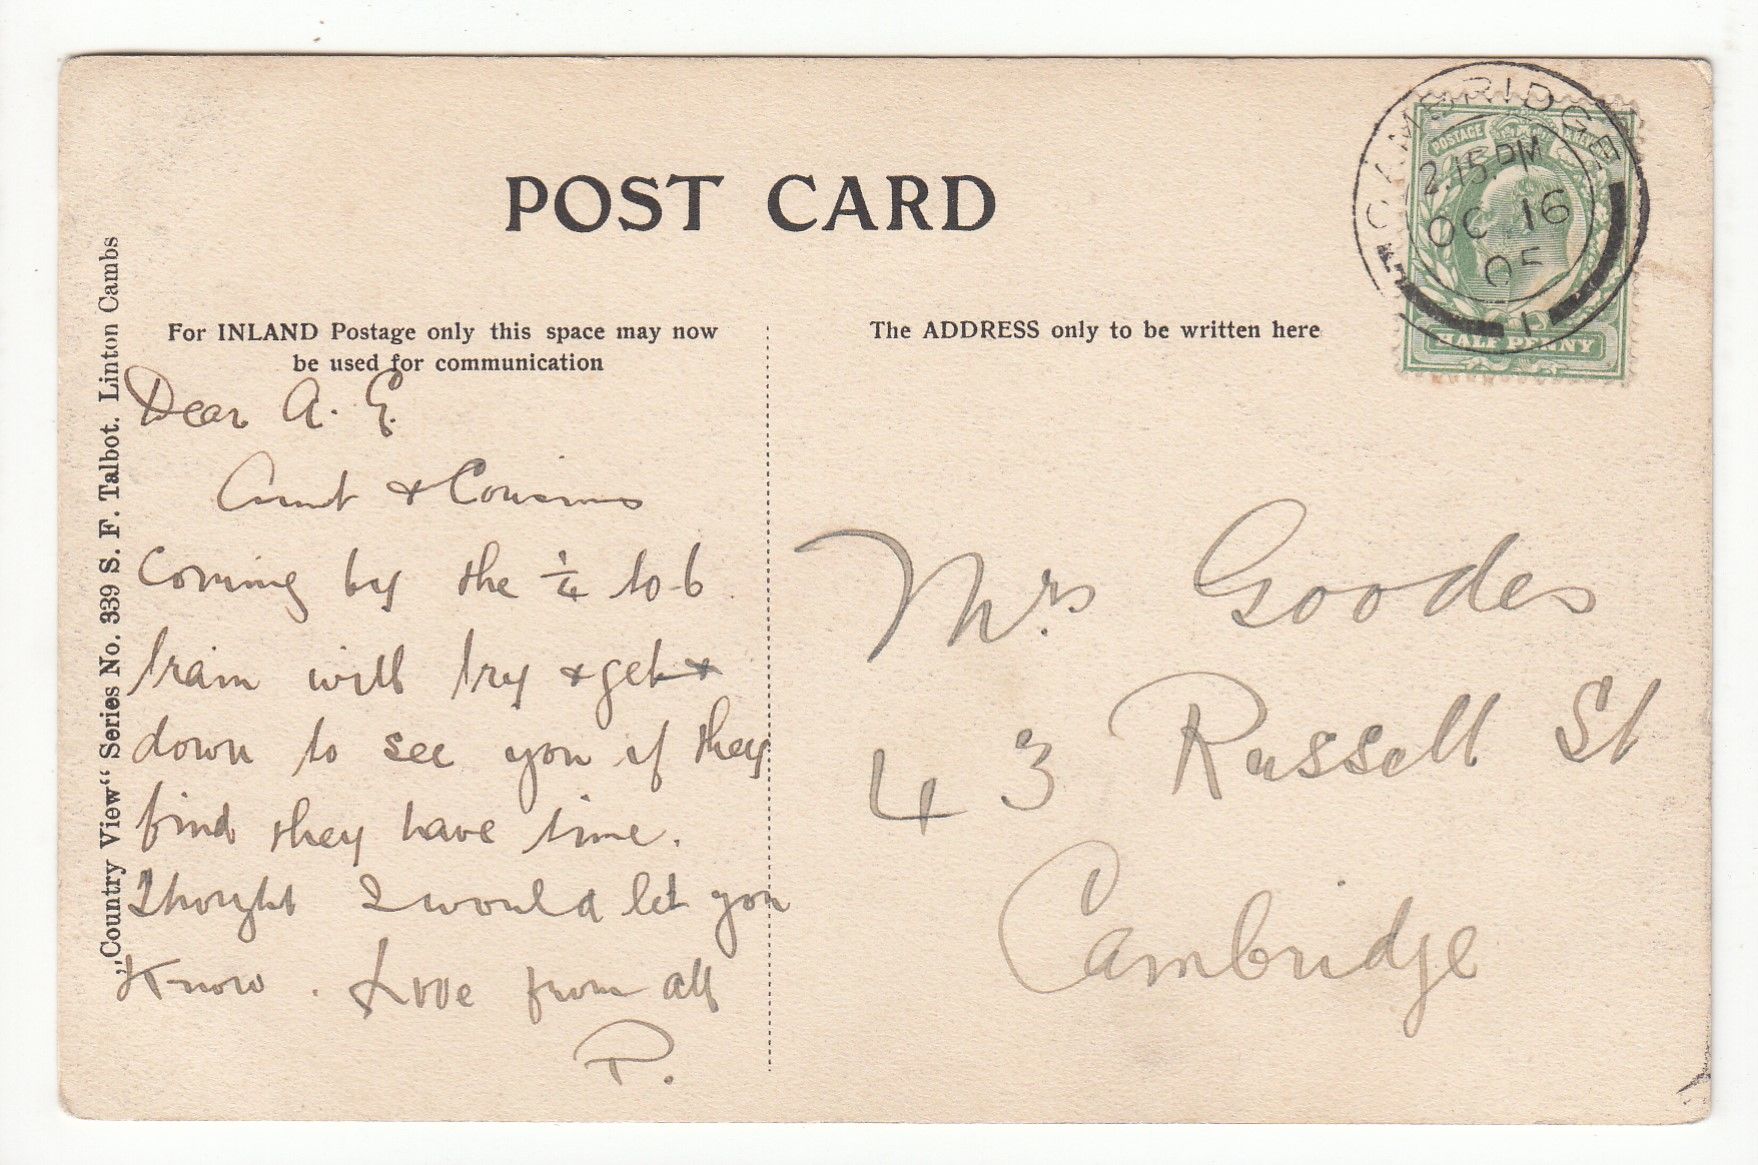 POST CARD
For INLAND Postage only this space may now
be used for communication
The ADDRESS only to be written here
„Country View“ Series No. 339 S. F. Talbot. Linton Cambs
CAMBRIDGE
2.15.PM
OC 16
05
1
POSTAGE
HALF PENNY
Dear A. E.
Aunt & Cousins
Coming by the ¼ to 6
train will try & get
down to see you if they
find they have time.
Thought I would let you
Know. Love from all
P.
Mrs Goodes
43 Russell St
Cambridge